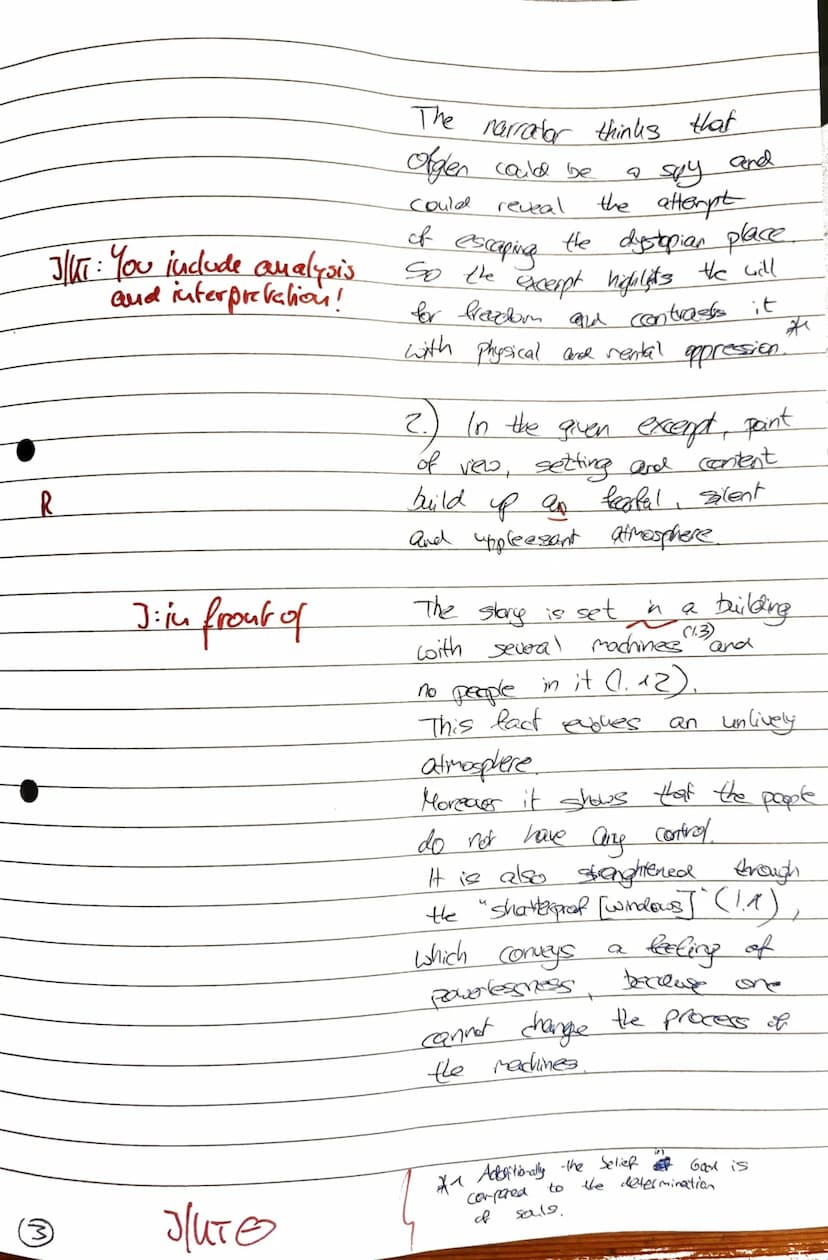 The narrator thinks that
Ofglen could be a spy and
could reveal the attempt
of escaping the dystopian place.
J/UT: You include analysis
and interpretation!
So the excerpt highlights the will
for freedom and contrasts it
with physical and mental oppression. *1
2.) In the given excerpt, point
of view, setting and content
R
build up an fearful, silent
and uppleasant atmosphere.
J: in front of
The story is set in a building
with several machines (l.3) and
no people in it (l. 12).
This fact evokes an unlively
atmosphere.
Moreover it shows that the people
do not have any control.
It is also strenghtened through
the "shatterproof [windows]" (l.1),
which conveys a feeling of
powerlessness, because one
cannot change the process of
the machines.
*1 Additionally the belief in God is
compared to the determination
of souls.
J/UT ⊖
3